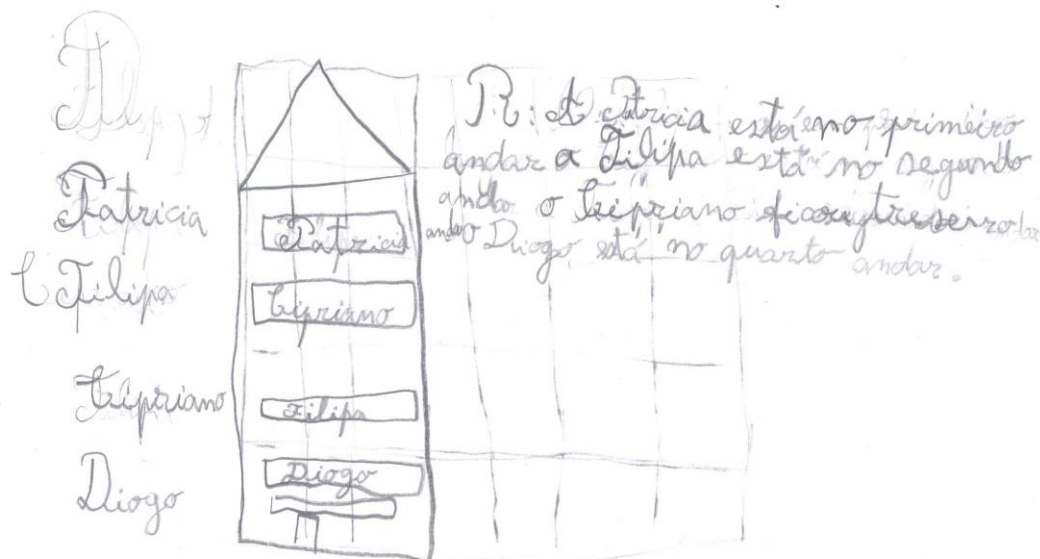 Patricia
Filipa
Cipriano
Diogo
Patricia
Cipriano
Filipa
Diogo
R: A Patricia está no primeiro
andar a Filipa está no segundo
andar o Cipriano
andar o Diogo está no quarto andar.